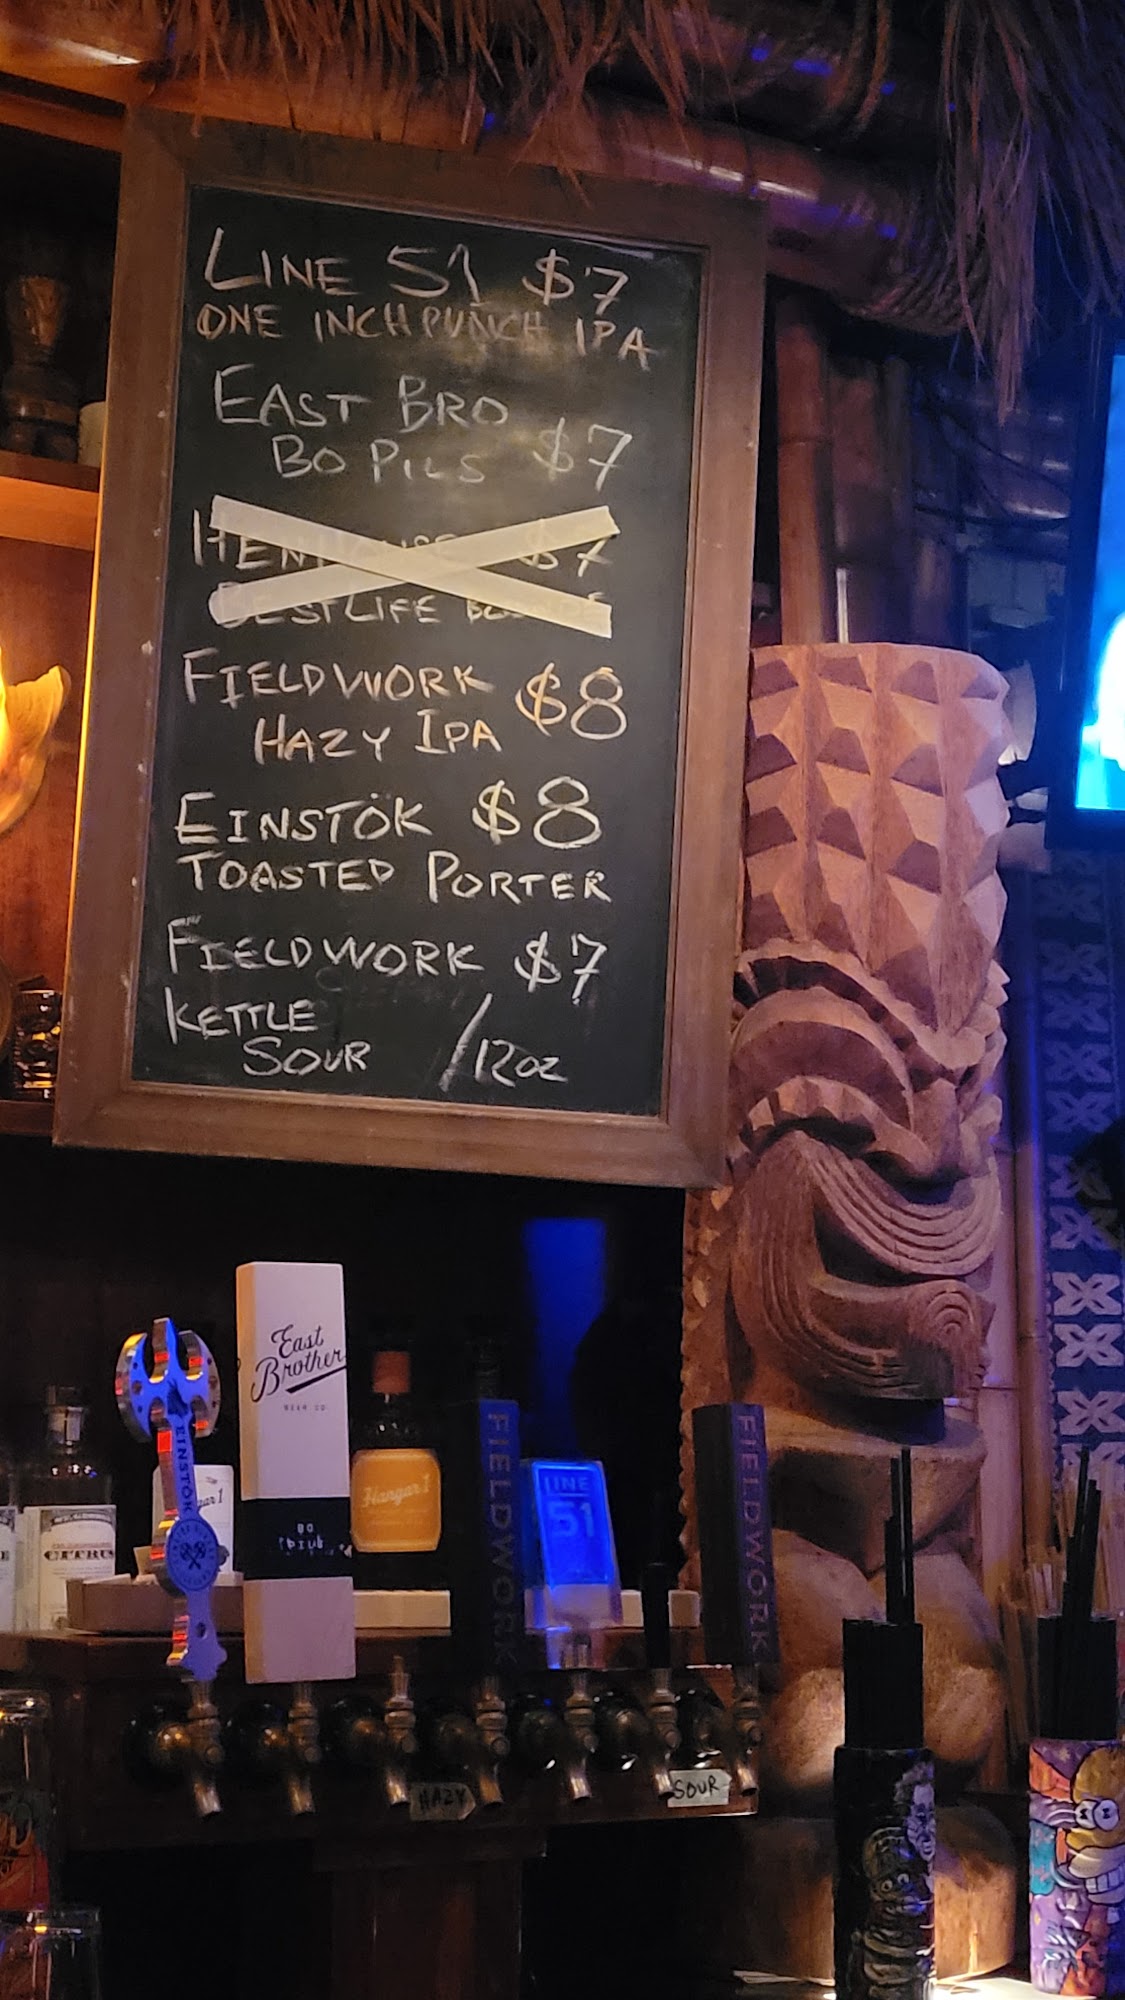 LINE 51 $7
ONE INCH PUNCH IPA
EAST BRO
BO PILS $7
HENHOUSE $7
BEST LIFE BLONDE
FIELDWORK $8
HAZY IPA
EINSTÖK $8
TOASTED PORTER
FIELDWORK $7
KETTLE
SOUR /12oz
East
Brothers
BEER CO.
BO
PILS
EINSTÖK
Hangar 1
gar 1
CITRUS
FIELDWORK
LINE
51
FIELDWORK
HAZY
SOUR